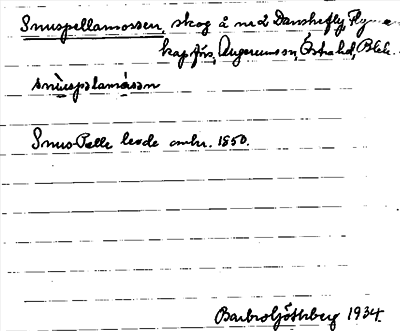 Snuspellamossen, skog å nr 2 Danshefly, Flymen
kap.förs, Augerums sn, Östra hd, Blek.
snùspelamåsən
Snus-Pelle levde omkr. 1850.
Barbro Göthberg 1934.